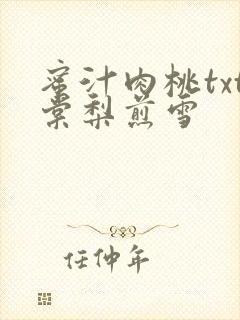 蜜汁肉桃txt
棠梨煎雪
任仲年